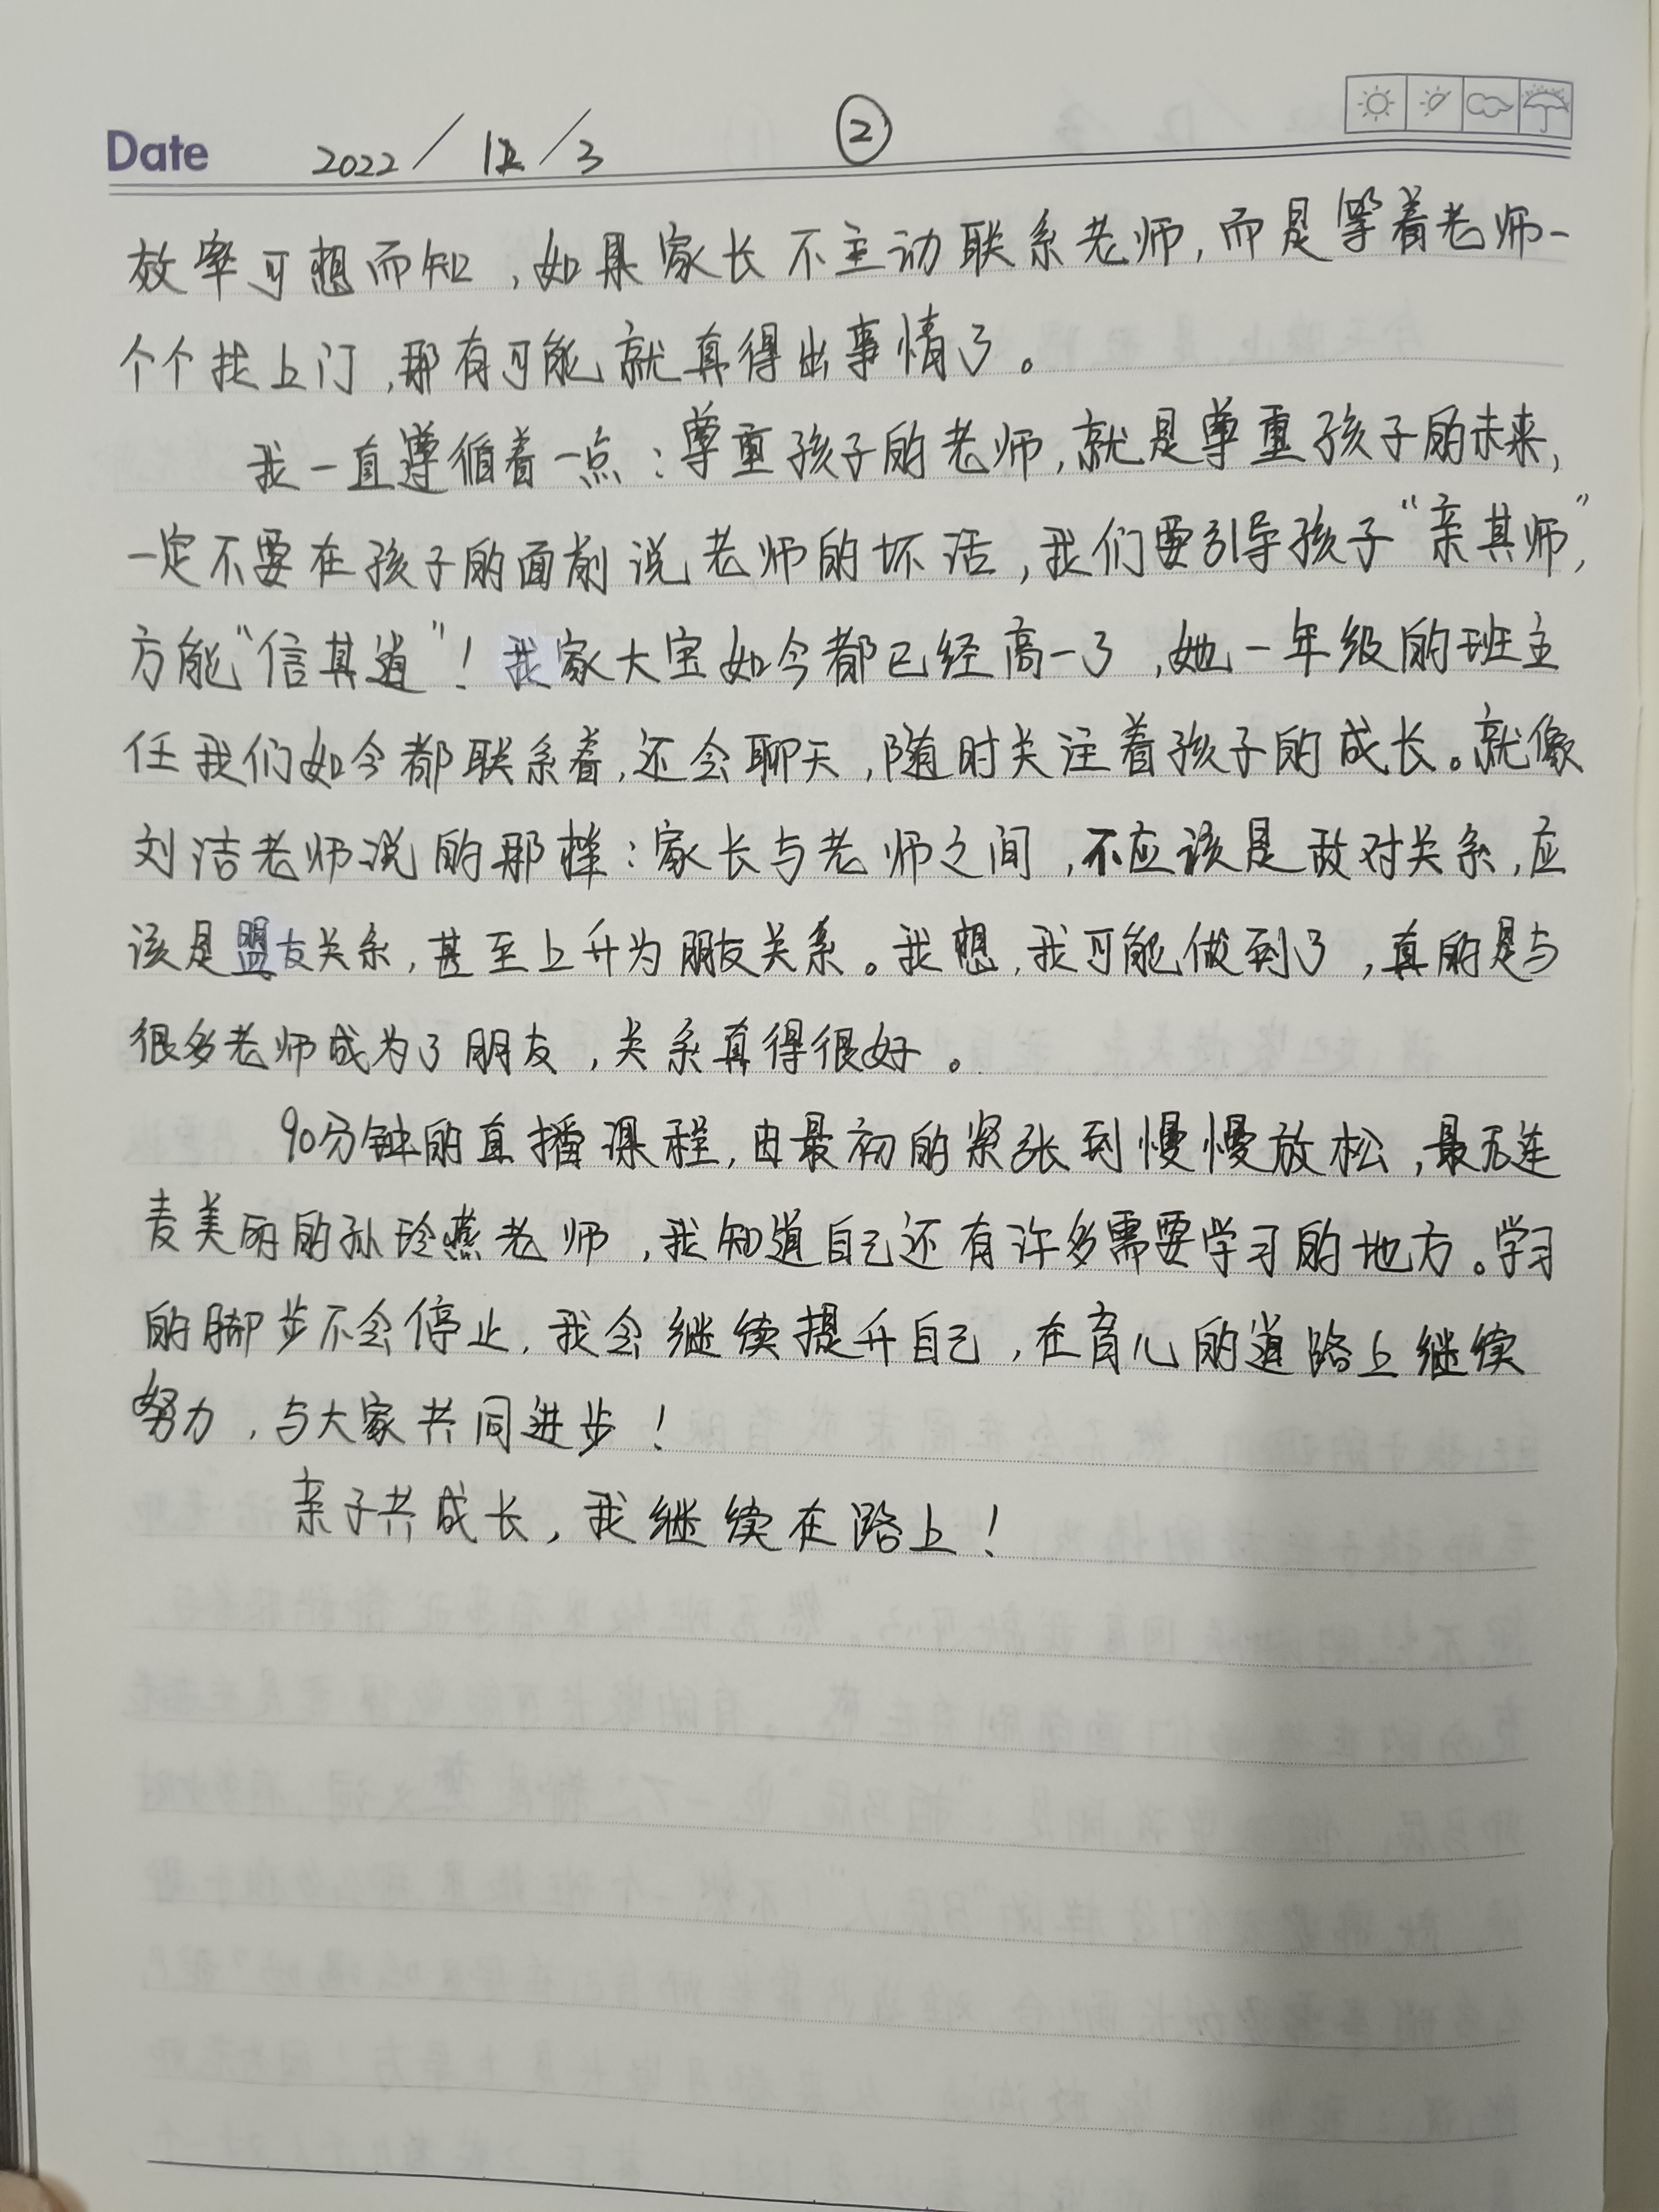 Date 2022/12/3 ②
效率可想而知，如果家长不主动联系老师，而是等着老师一
个个找上门，那有可能就真得出事情了。
我一直遵循着一点：尊重孩子的老师，就是尊重孩子的未来，
一定不要在孩子的面前说老师的坏话，我们要引导孩子“亲其师”，
方能“信其道”！我家大宝如今都已经高一了，她一年级的班主
任我们如今都联系着，还会聊天，随时关注着孩子的成长。就像
刘洁老师说的那样：家长与老师之间，不应该是敌对关系，应
该是盟友关系，甚至上升为朋友关系。我想，我可能做到了，真的是与
很多老师成为了朋友，关系真得很好。
90分钟的直播课程，由最初的紧张到慢慢放松，最后连
麦美丽的孙玲燕老师，我知道自己还有许多需要学习的地方。学习
的脚步不会停止，我会继续提升自己，在育儿的道路上继续
努力，与大家共同进步！
亲子共成长，我继续在路上！